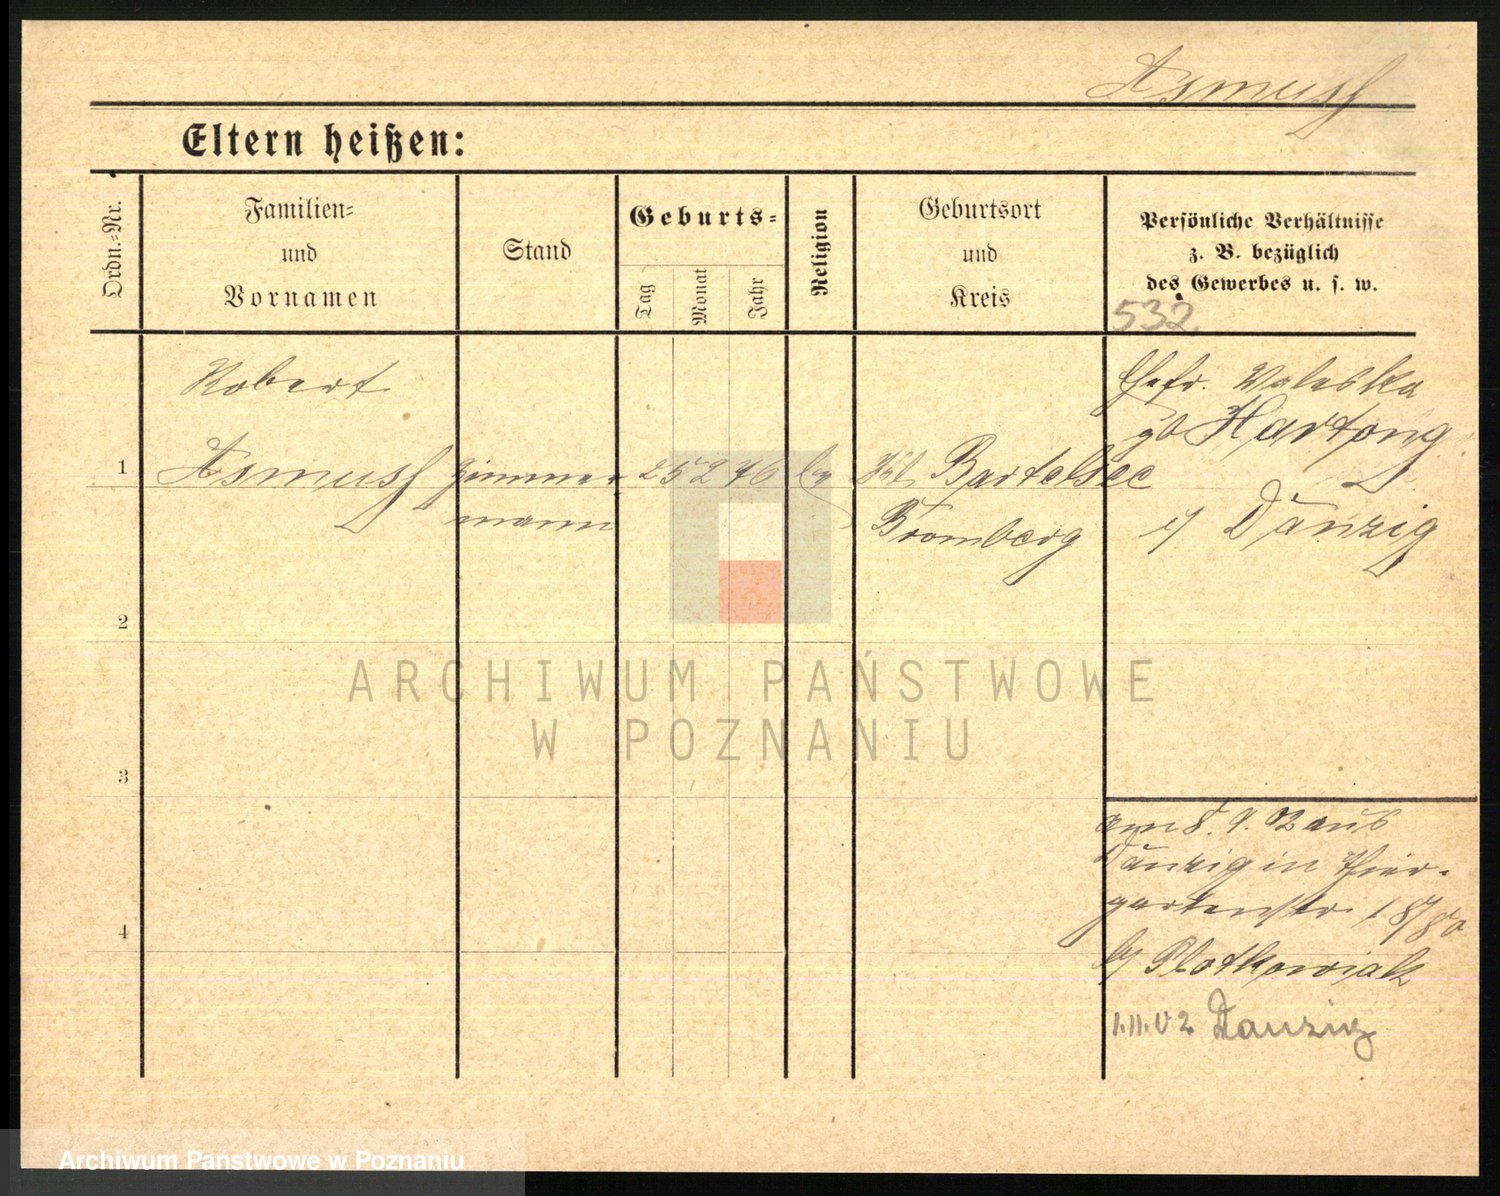 Asmuss
Eltern heißen:
Ordn.-Nr.
Familien-
und
Vornamen
Stand
Geburts-
Tag
Monat
Jahr
Religion
Geburtsort
und
Kreis
Persönliche Verhältnisse
z. B. bezüglich
des Gewerbes u. s. w.
532
Robert
1 Asmuss
Zimmer
mann
25 2 76
ev
Bartelsee
Bromberg
Ehefr. Valeska
gb Hartong
i/ Danzig
2
3
4
am 8. 9. 02 aus
Danzig in Thier-
gartenstr. 18/
b/ Plotkowiak
1.11.02 Danzig
ARCHIWUM PAŃSTWOWE
W POZNANIU
Archiwum Państwowe w Poznaniu